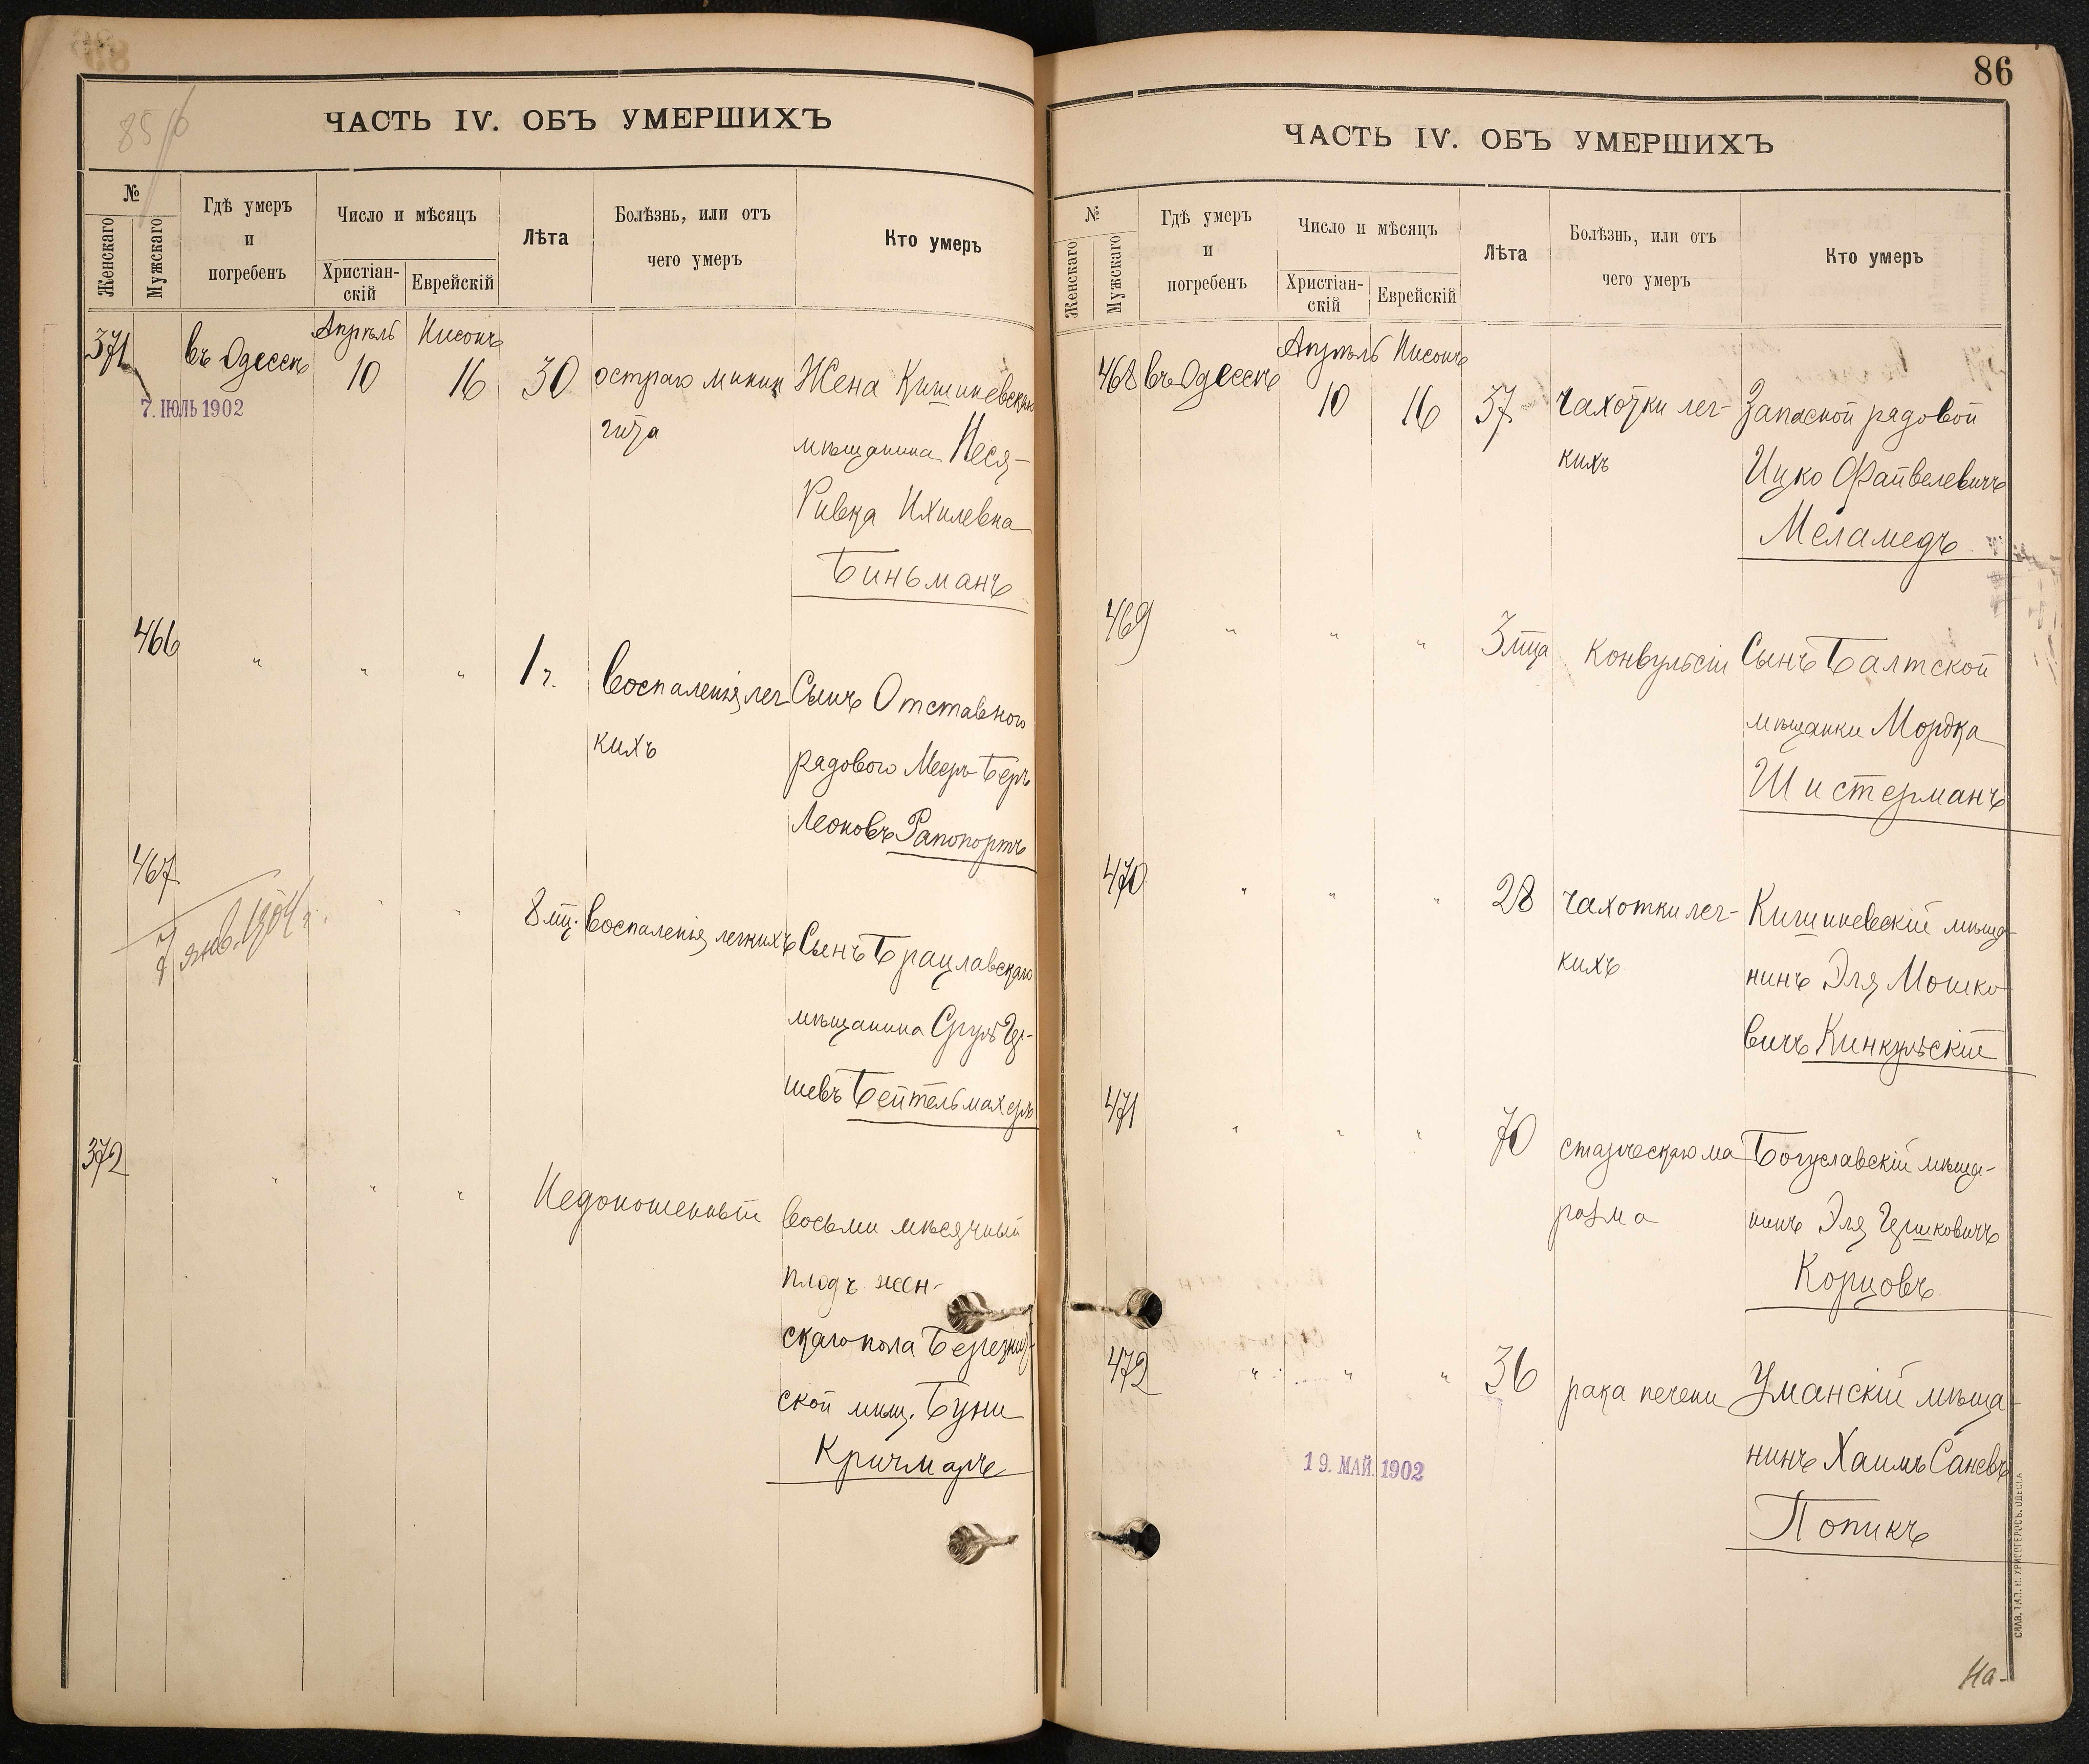 85/б
ЧАСТЬ IV. ОБЪ УМЕРШИХЪ
№
Женскаго
Мужскаго
Гдѣ умеръ
и
погребенъ
Число и мѣсяцъ
Христіан-
скій
Еврейскій
Лѣта
Болѣзнь, или отъ
чего умеръ
Кто умеръ
371
въ Одессѣ
Апрѣль
10
Нисонъ
16
30
остраго менин
гита
Жена Кишиневскаго
мѣщанина Неся-
Ривка Ихилевна
Биньманъ
7. ІЮЛЬ 1902
466
"
"
"
1 г.
воспаленія лег
кихъ
Сынъ Отставного
рядового Мееръ-Беръ
Леоновъ Рапопортъ
467
7 янв. 1904 г.
"
"
8 мц.
воспаленія легкихъ
Сынъ Брацлавскаго
мѣщанина Сруль Гер-
шевъ Бейтельмахеръ
372
"
"
"
Недоношенный
восьми мѣсячный
плодъ жен-
скаго пола
ской мѣщ. Буни
Кричмаръ
86
ЧАСТЬ IV. ОБЪ УМЕРШИХЪ
№
Женскаго
Мужскаго
Гдѣ умеръ
и
погребенъ
Число и мѣсяцъ
Христіан-
скій
Еврейскій
Лѣта
Болѣзнь, или отъ
чего умеръ
Кто умеръ
468
въ Одессѣ
Апрѣль
10
Нисонъ
16
37
чахотки лег-
кихъ
Запасной рядовой
Ицко Файвелевичъ
Меламедъ
469
"
"
"
3 мца
Конвульсіи
Сынъ Балтской
мѣщанки Мордка
Шистерманъ
470
"
"
"
28
чахотки лег-
кихъ
Кишиневскій мѣща-
нинъ Эля Мошко
вичъ Кинкульскій
471
"
"
"
70
старческаго ма
разма
Богуславскій мѣща-
нинъ Эля Гершковичъ
Корцовъ
472
"
"
"
36
рака печени
Уманскій мѣща-
нинъ Хаимъ Саневъ
Попикъ
19. МАЙ. 1902
На-